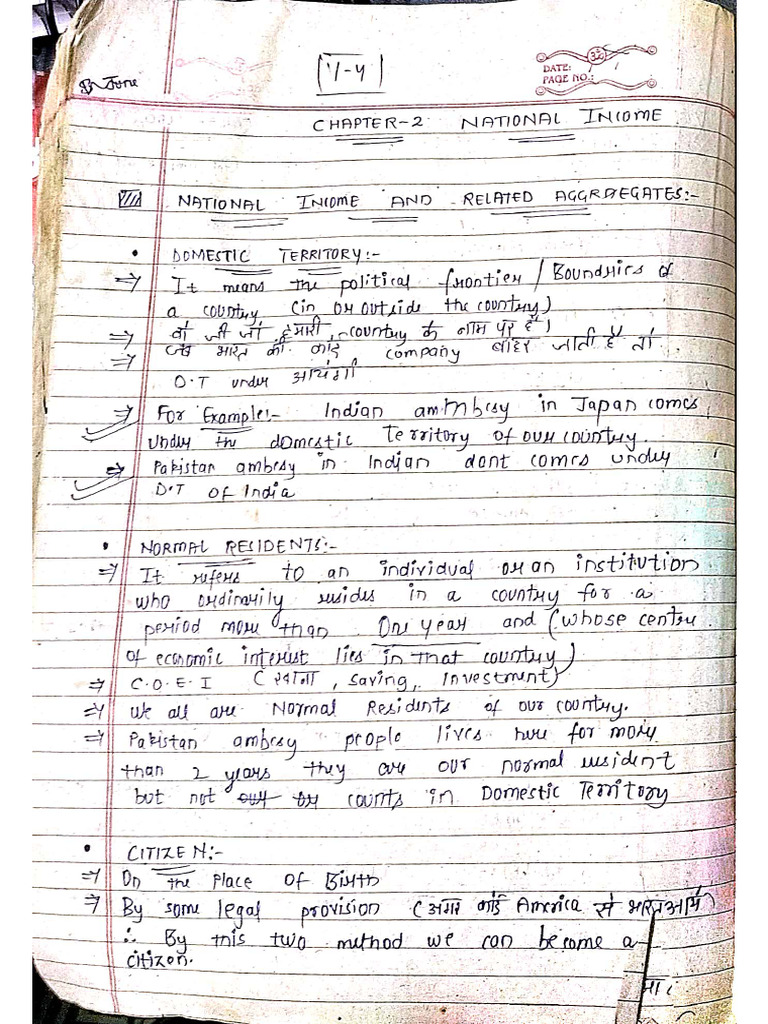 June
V-4
DATE:
PAGE NO.:
CHAPTER-2 NATIONAL INCOME
NATIONAL INCOME AND RELATED AGGRAEGATES:-
• DOMESTIC TERRITORY:-
⇒ It means the political frontier / Boundries of
a country (in or outside the country)
⇒ वो जो हमारी country के नाम पर है।
⇒ जब भारत की कोई company बाहर जाती है तो
D.T under आयेगी
⇒ For Example:- Indian ambesy in Japan comes
under the domestic Territory of our country.
⇒ Pakistan ambesy in Indian dont comes under
D.T of India
• NORMAL RESIDENTS:-
⇒ It refers to an individual or an institution
who ordinarily resides in a country for a
period more than One year and (whose centre
of economic interest lies in that country)
⇒ C.O.E.I ( खाना , saving, Investment)
⇒ We all are Normal Residents of our country.
⇒ Pakistan ambesy people lives here for more
than 2 years they are our normal resident
but not counts in Domestic Territory
• CITIZEN:-
⇒ On the Place of Birth
⇒ By some legal provision (अगर कोई America से भारत आये)
∴ By this two method we can become a
citizen.